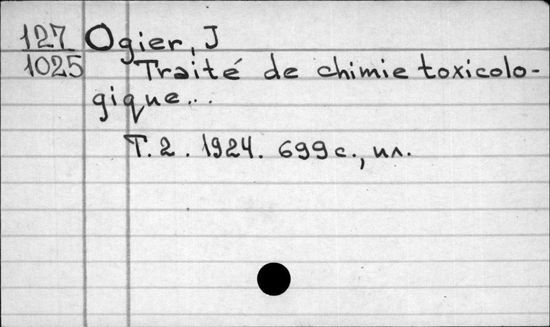 127 Ogier, J
1025 Traité de chimie toxicolo-
gique...
Т. 2. 1924. 699 с., ил.